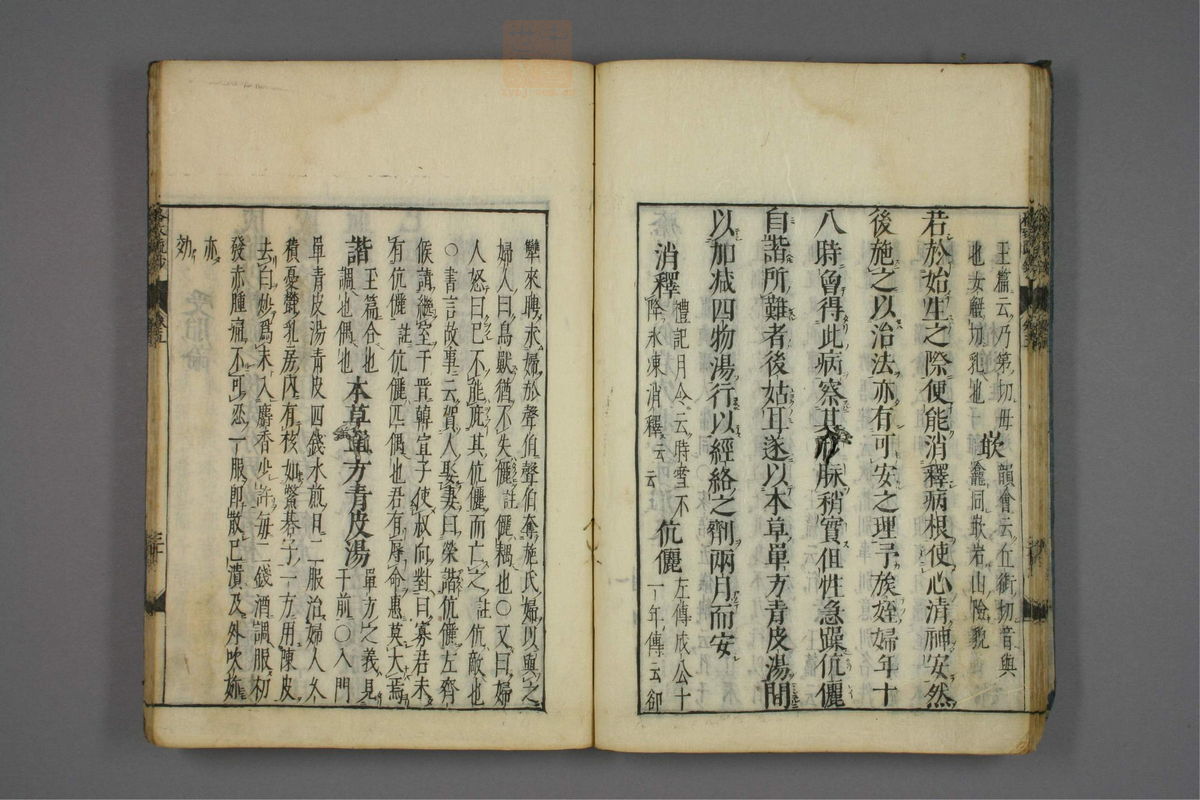 玉篇云乃第切毋也女蟹切乳也 嵌 韻會云丘銜切音與龕同嵌岩山險貌
若於始生之際便能消釋病根使心清神安然
後施之以治法亦有可安之理予族姪婦年十
八時曾得此病察其形脉稍實但性急躁伉儷
自諧所難者後姑耳遂以本草單方青皮湯間
以加减四物湯行以經絡之劑兩月而安
消釋 禮記月令云時雪不降氷凍消釋云云 伉儷 左傳成公十一年傳云郤
犫來聘求婦於聲伯聲伯奪施氏婦以與之
婦人曰鳥獸猶不失儷註儷耦也○又曰婦
人怒曰已不能庇其伉儷而亡之註伉敵也
○書言故事云賀人娶妻曰榮諧伉儷左齊
候請繼室于晋韓宣子使叔向對曰寡君未
有伉儷註伉儷匹偶也君有辱命惠莫大焉
諧 玉篇合也調也偶也 本草單方青皮湯 單方之義見于前○入門
單青皮湯青皮四錢水煎日二服治婦人久
積憂鬱乳房内有核如鱉碁子一方用陳皮
去白炒爲末入麝香少許每二錢酒調服初
發赤腫痛不可忍一服即散已潰及外吹妳
亦効